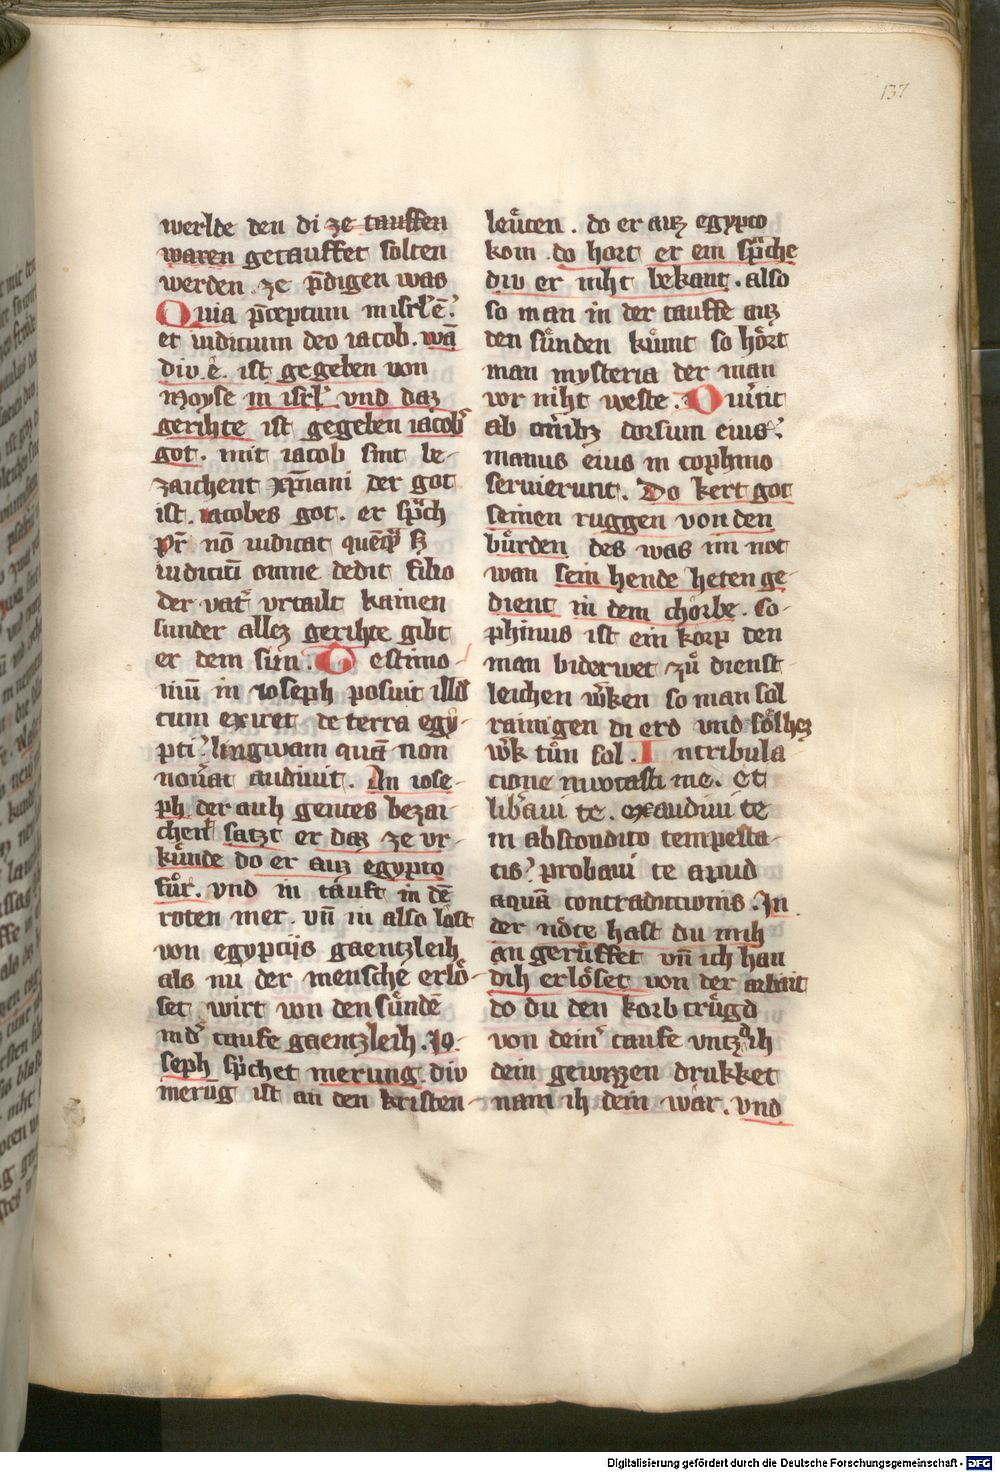 137
werlde den di ze tauffen
waren getauffet solten
werden. ze p̄digen was
Quia p̄ceptum in isrl̄ ē.
et iudicium deo iacob. wā
div. e. ist gegeben von
Moyse in isrl̄ vnd daz
gerihte ist gegeben iacobs
got. mit iacob sint be-
zaichent xp̄iani der got
ist. iacobes got. er sp̄ch
pr̄ nō iudicat
iudiciū omne dedit filio
der vat̓ vrtailt kainen
sunder allez gerihte gibt
er dem sun. Testimo-
niū in ioseph posuit illd̄
cum exiret de terra egy-
pti. lingwam quā non
nou̓at audiuit. In iose-
ph der auh gentes bezai-
chent satzt er daz ze vr-
kůnde do er auz egypto
fůr. vnd in tauft in dē
roten mer. vn̄ in also lost
von egyptijs gaentzleih
als nu der mensche erlo̊-
set wirt von den sůndē
in d̓ taufe gaentzleih. Jo-
seph sp̄chet merung. div
merūg ist an den kristen-
leůten. do er auz egypto
kom. do hort er ein sp̄che
div er niht bekant. also
so man in der tauffe auz
den sůnden kůmt so ho̊rt
man mysteria der man
vor niht weste. Diu̓tit
ab on̓ibz dorsum eius.
manus eius in cophino
seruierunt. Do kert got
seinen ruggen von den
bůrden des was im not
wan sein hende heten ge-
dient in dem chorbe. co-
phinus ist ein korp den
man biderwet zů dienst-
leichen w̓ken so man sol
rainigen di erd vnd so̊lhez
w̓k tůn sol. In tribula-
cione inuocasti me. et
lib̓aui te. exaudiui te
in abscondito tempesta-
tis. probaui te apud
aquā contradictionis. In
der no̊te hast du mih
an gerůffet vn̄ ich han
dih erlo̊set von der arbait
do du den korb trůgd
von dein̓ taufe vntz ih
dein gewizzen drukket
nam ih dein war. vnd
Digitalisierung gefördert durch die Deutsche Forschungsgemeinschaft - DFG